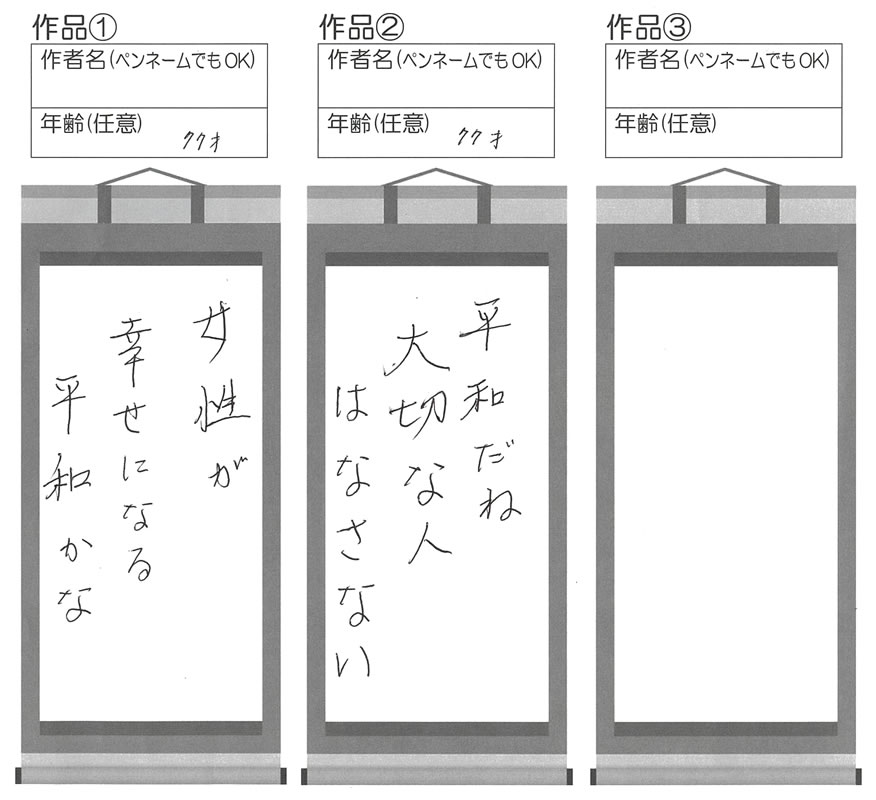 作品①
作者名(ペンネームでもOK)
年齢(任意)
77才
女性が
幸せになる
平和かな
作品②
作者名(ペンネームでもOK)
年齢(任意)
77才
平和だね
大切な人
はなさない
作品③
作者名(ペンネームでもOK)
年齢(任意)